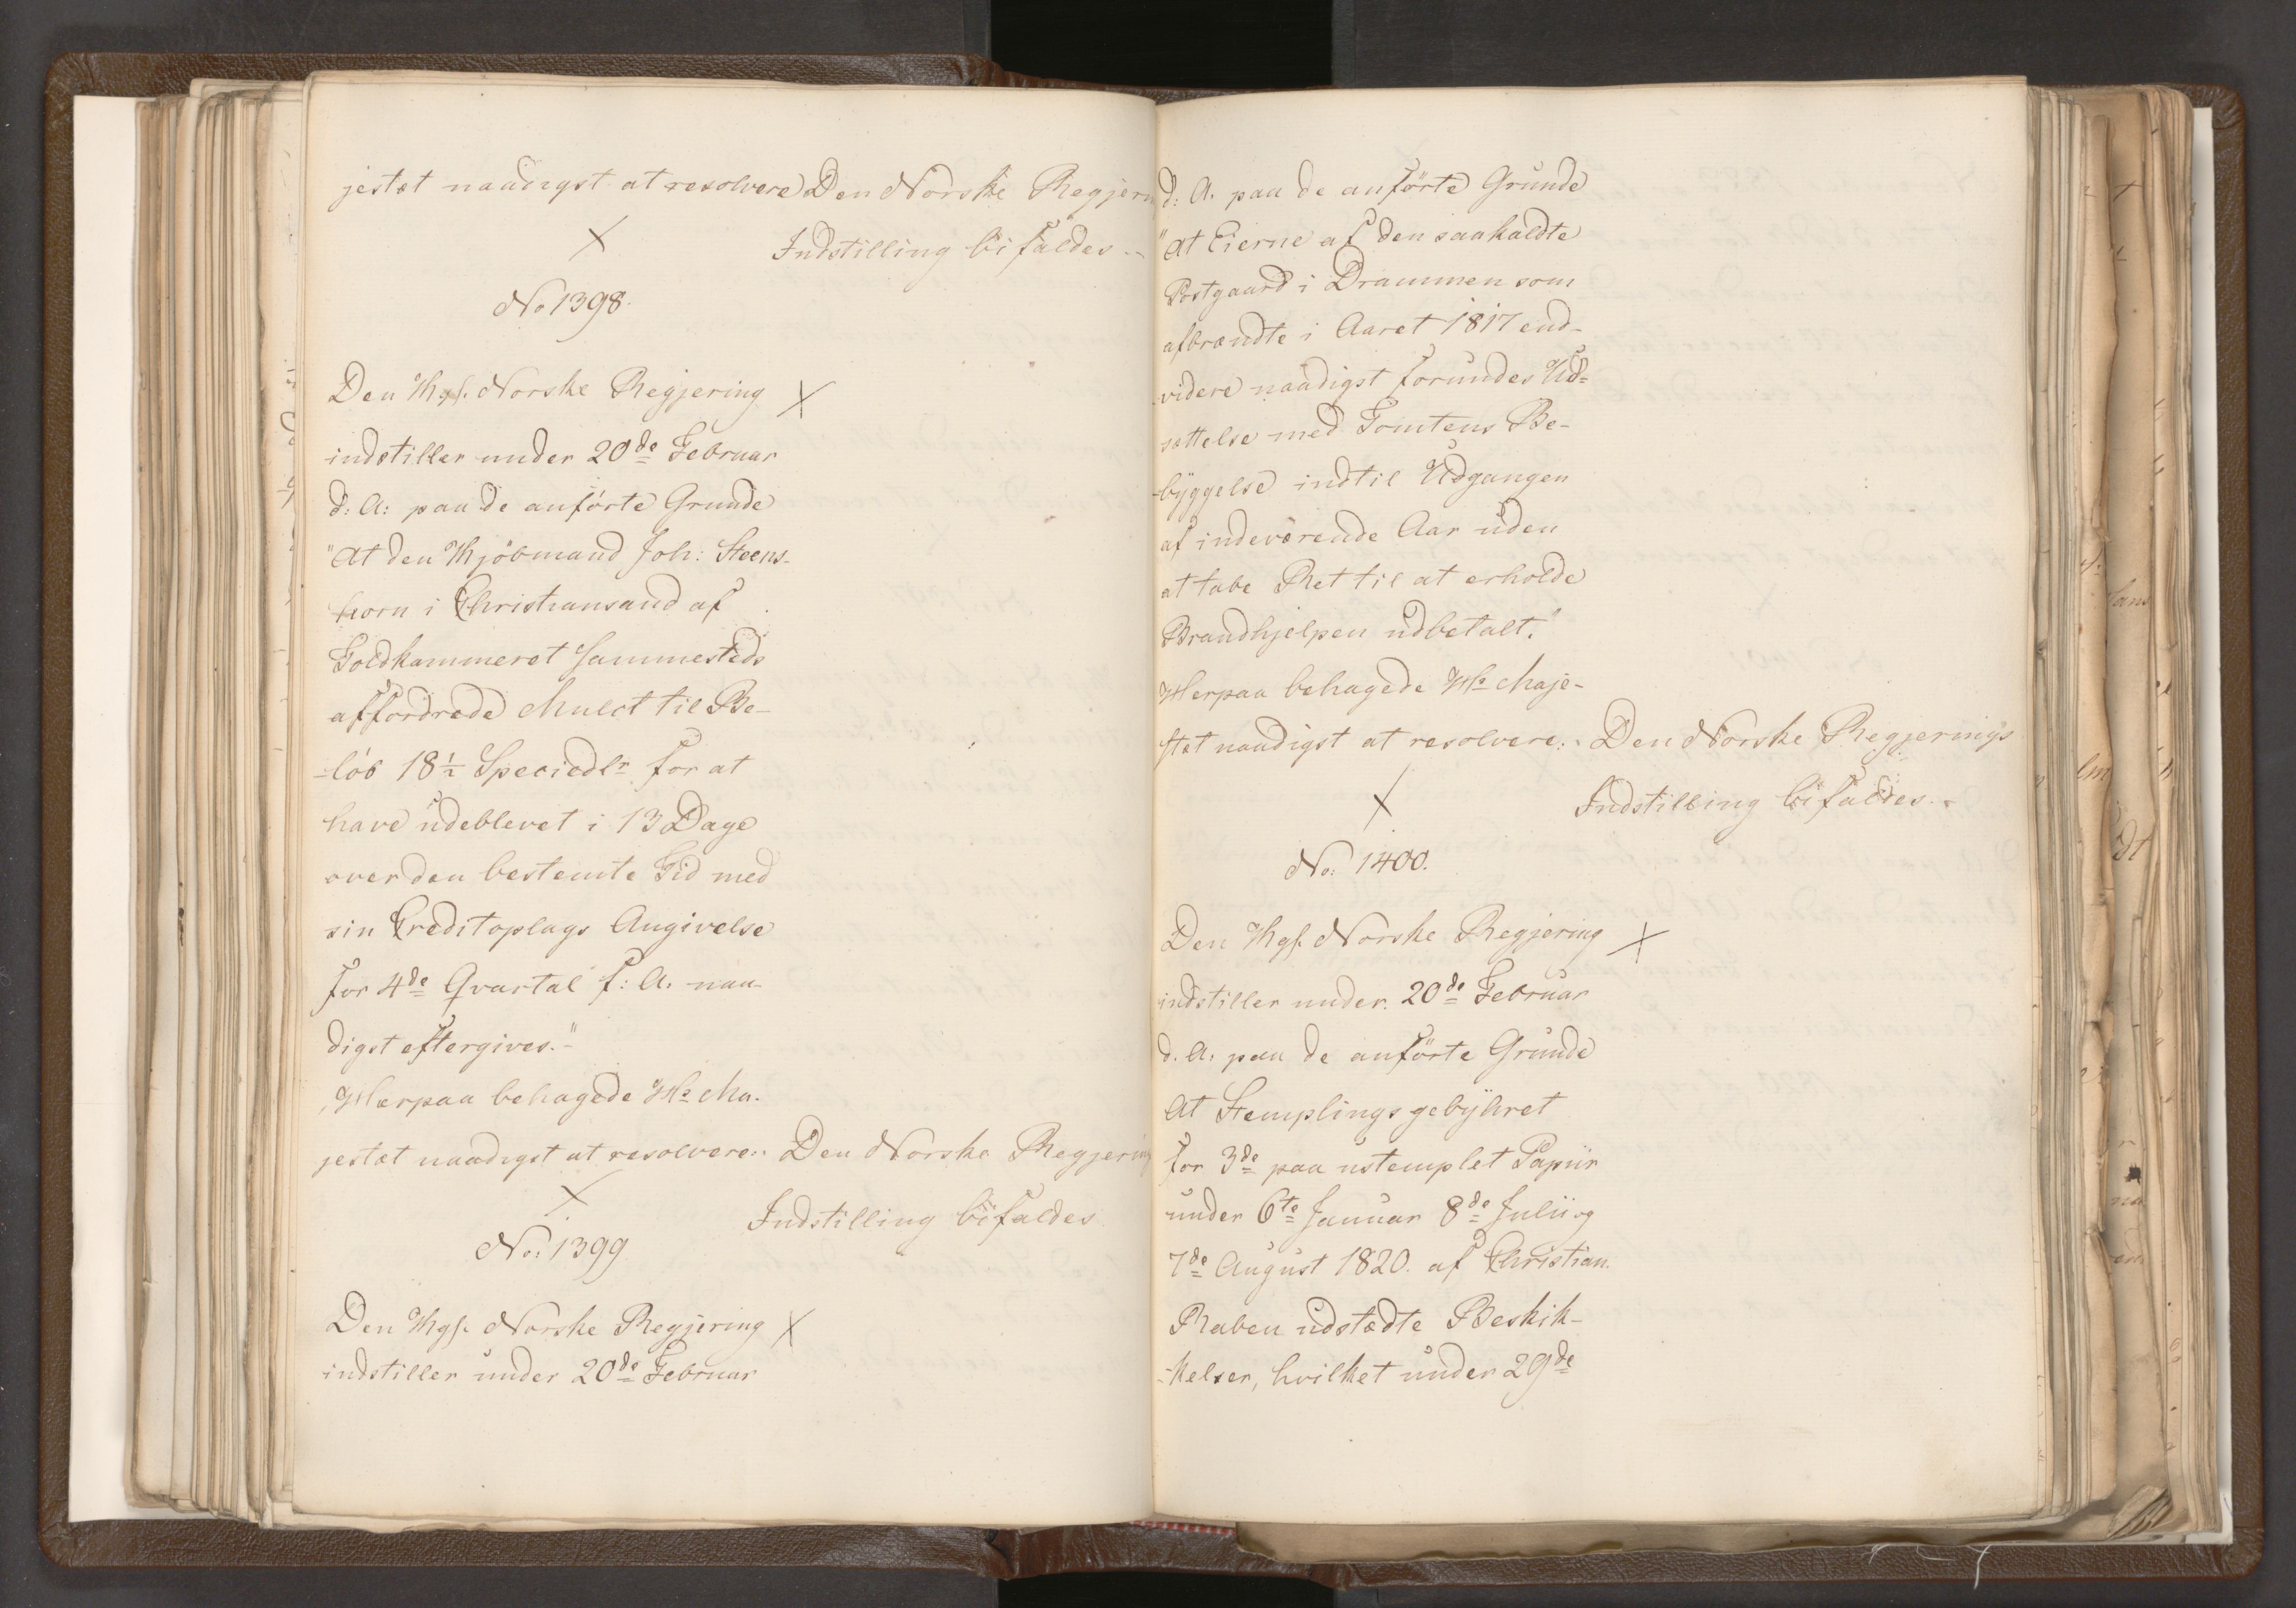 jestæt naadigst at resolvere Den Norske Regjern
X Indstilling bifaldes. -
No 1398.
Den Kgl. Norske Regjering X
indstiller under 20de Februar
d: A: paa de anförte Grunde
"At den Kjöbmand Joh: Steens-
horn i Christiansand af
Toldkammeret sammesteds
affordrede Mulct til Be-
-löb 18½ Speciedlr for at
have udeblevet i 13 Dage
over den bestemte Tid med
sin Creditoplags Angivelse
for 4de Qvartal f: A. naa-
digst eftergives."-
Herpaa behagede Hs Ma-
jestæt naadigst at resolvere:- Den Norske Regjering
X Indstilling bifaldes
No: 1399
Den Kgl. Norske Regjering X
indstiller under 20de Februar
d: A. paa de anförte Grunde
"At Eierne af den saakaldte
Postgaard i Drammen som
afbrændte i Aaret 1817 end-
videre naadigst forundes Ud-
sættelse med Tomtens Be-
-byggelse indtil Udgangen
af indeværende Aar uden
at tabe Ret til at erholde
Brandhjelpen udbetalt."
Herpaa behagede Hs Maje-
stæt naadigst at resolvere:- Den Norske Regjerings
X Indstilling bifaldes.-
No: 1400.
Den Kgl. Norske Regjering X
indstiller under 20de Februar
d. A: paa de anförte Grunde
At Stemplingsgebyhret
for 3de paa ustemplet Papiir
under 6te Januar 8de Julii og
7de August 1820. af Christian
Raben udstædte Beskik-
-kelser, hvilket under 29de